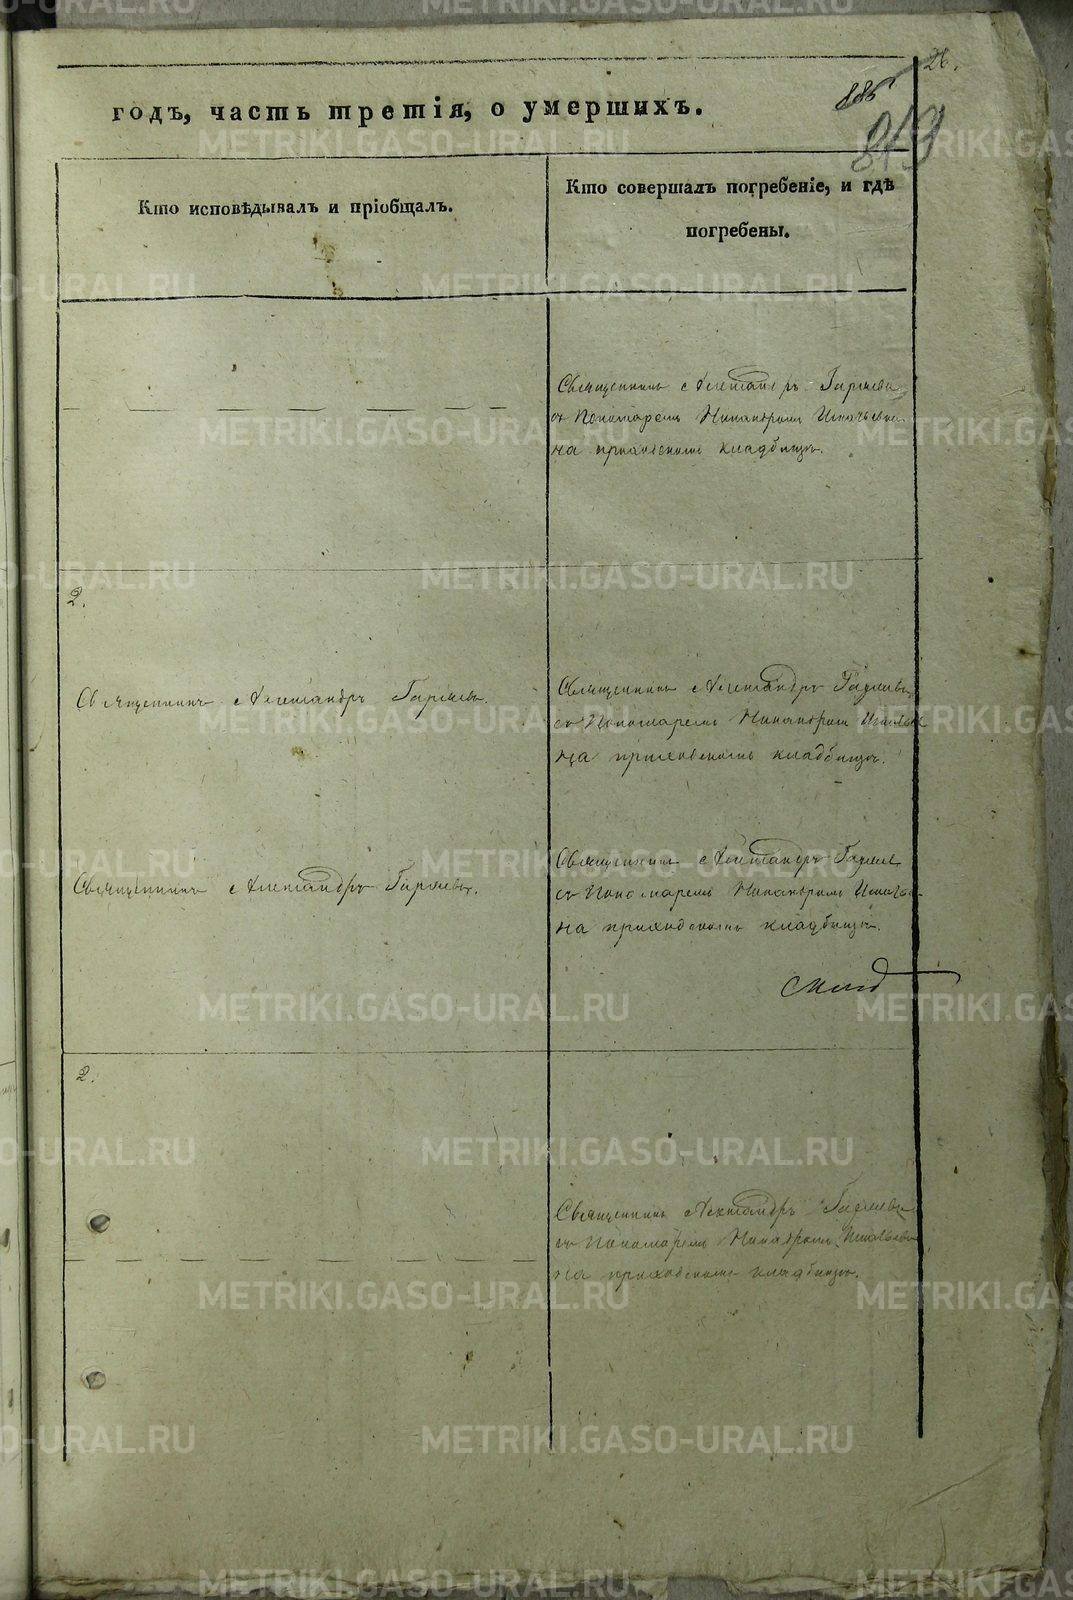 26.
885
годъ, часть третія, о умершихъ.
Кто исповѣдывалъ и пріобщалъ.
Кто совершалъ погребеніе, и гдѣ
погребены.
Священникъ Александръ Гаряевъ
съ Пономаремъ Никандромъ
на приходскомъ кладбищѣ.
2.
Священникъ Александръ Гаряевъ.
Священникъ Александръ Гаряевъ
съ Пономаремъ Никандромъ
на приходскомъ кладбищѣ.
Священникъ Александръ Гаряевъ.
Священникъ Александръ Гаряевъ
съ Пономаремъ Никандромъ
на приходскомъ кладбищѣ.
2.
Священникъ Александръ Гаряевъ
съ Пономаремъ Никандромъ
на приходскомъ кладбищѣ.
METRIKI.GASO-URAL.RU